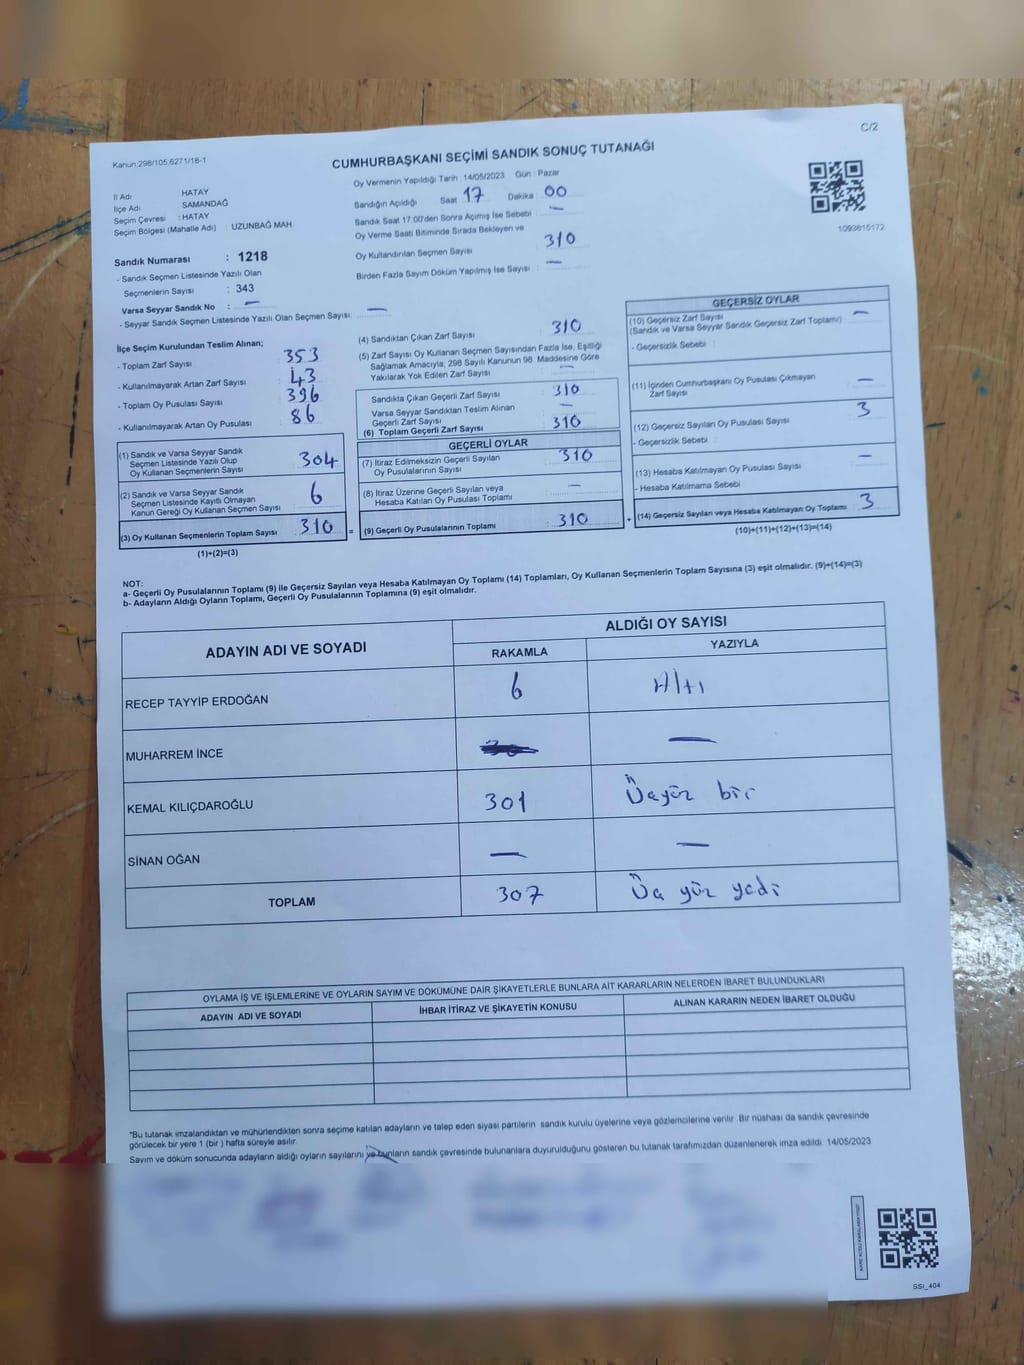 C/2
Kanun:298/105;6271/18-1
CUMHURBAŞKANI SEÇİMİ SANDIK SONUÇ TUTANAĞI
İl Adı : HATAY
İlçe Adı : SAMANDAĞ
Seçim Çevresi : HATAY
Seçim Bölgesi (Mahalle Adı) : UZUNBAĞ MAH
Oy Vermenin Yapıldığı Tarih : 14/05/2023 Gün : Pazar
Sandığın Açıldığı Saat 17 Dakika : 00
Sandık Saat 17:00'den Sonra Açımış İse Sebebi : —
Oy Verme Saati Bitiminde Sırada Bekleyen ve
Oy Kullandırılan Seçmen Sayısı : 310
Birden Fazla Sayım Döküm Yapılmış İse Sayısı : —
1093815172
Sandık Numarası : 1218
- Sandık Seçmen Listesinde Yazılı Olan
Seçmenlerin Sayısı : 343
Varsa Seyyar Sandık No : —
- Seyyar Sandık Seçmen Listesinde Yazılı Olan Seçmen Sayısı: —
İlçe Seçim Kurulundan Teslim Alınan;
- Toplam Zarf Sayısı : 353
- Kullanılmayarak Artan Zarf Sayısı : 43
- Toplam Oy Pusulası Sayısı : 396
- Kullanılmayarak Artan Oy Pusulası : 86
(1) Sandık ve Varsa Seyyar Sandık
Seçmen Listesinde Yazılı Olup
Oy Kullanan Seçmenlerin Sayısı : 304
(2) Sandık ve Varsa Seyyar Sandık
Seçmen Listesinde Kayıtlı Olmayan
Kanun Gereği Oy Kullanan Seçmen Sayısı : 6
(3) Oy Kullanan Seçmenlerin Toplam Sayısı : 310 =
(1)+(2)=(3)
(4) Sandıktan Çıkan Zarf Sayısı : 310
(5) Zarf Sayısı Oy Kullanan Seçmen Sayısından Fazla İse, Eşitliği
Sağlamak Amacıyla; 298 Sayılı Kanunun 98. Maddesine Göre
Yakılarak Yok Edilen Zarf Sayısı : —
Sandıkta Çıkan Geçerli Zarf Sayısı : 310
Varsa Seyyar Sandıktan Teslim Alınan
Geçerli Zarf Sayısı : —
(6) Toplam Geçerli Zarf Sayısı : 310
GEÇERLİ OYLAR
(7) İtiraz Edilmeksizin Geçerli Sayılan
Oy Pusulalarının Sayısı : 310
(8) İtiraz Üzerine Geçerli Sayılan veya
Hesaba Katılan Oy Pusulası Toplamı : —
(9) Geçerli Oy Pusulalarının Toplamı : 310 +
GEÇERSİZ OYLAR
(10) Geçersiz Zarf Sayısı : —
(Sandık ve Varsa Seyyar Sandık Geçersiz Zarf Toplamı)
- Geçersizlik Sebebi :
(11) İçinden Cumhurbaşkanı Oy Pusulası Çıkmayan
Zarf Sayısı : —
(12) Geçersiz Sayılan Oy Pusulası Sayısı : 3
- Geçersizlik Sebebi :
(13) Hesaba Katılmayan Oy Pusulası Sayısı : —
- Hesaba Katılmama Sebebi :
(14) Geçersiz Sayılan veya Hesaba Katılmayan Oy Toplamı : 3
(10)+(11)+(12)+(13)=(14)
NOT:
a- Geçerli Oy Pusulalarının Toplamı (9) ile Geçersiz Sayılan veya Hesaba Katılmayan Oy Toplamı (14) Toplamları, Oy Kullanan Seçmenlerin Toplam Sayısına (3) eşit olmalıdır. (9)+(14)=(3)
b- Adayların Aldığı Oyların Toplamı, Geçerli Oy Pusulalarının Toplamına (9) eşit olmalıdır.
ADAYIN ADI VE SOYADI ALDIĞI OY SAYISI
RAKAMLA YAZIYLA
RECEP TAYYİP ERDOĞAN 6 Altı
MUHARREM İNCE —
KEMAL KILIÇDAROĞLU 301 Üçyüz bir
SİNAN OĞAN — —
TOPLAM 307 Üç yüz yedi
OYLAMA İŞ VE İŞLEMLERİNE VE OYLARIN SAYIM VE DÖKÜMÜNE DAİR ŞİKAYETLERLE BUNLARA AİT KARARLARIN NELERDEN İBARET BULUNDUKLARI
ADAYIN ADI VE SOYADI İHBAR İTİRAZ VE ŞİKAYETİN KONUSU ALINAN KARARIN NEDEN İBARET OLDUĞU
*Bu tutanak imzalandıktan ve mühürlendikten sonra seçime katılan adayların ve talep eden siyasi partilerin sandık kurulu üyelerine veya gözlemcilerine verilir. Bir nüshası da sandık çevresinde
görülecek bir yere 1 (bir ) hafta süreyle asılır.
Sayım ve döküm sonucunda adayların aldığı oyların sayılarını ve bunların sandık çevresinde bulunanlara duyurulduğunu gösteren bu tutanak tarafımızdan düzenlenerek imza edildi. 14/05/2023
SSI_404